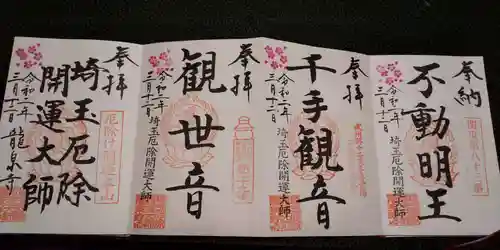 奉納
不動明王
令和二年
三月十二日
埼玉厄除開運大師
奉拝
千手観音
令和二年
三月十二日
埼玉厄除開運大師
奉拝
観世音
令和二年
三月十二日
埼玉厄除開運大師
奉拝
埼玉厄除
開運大師
令和二年
三月十二日
龍泉寺